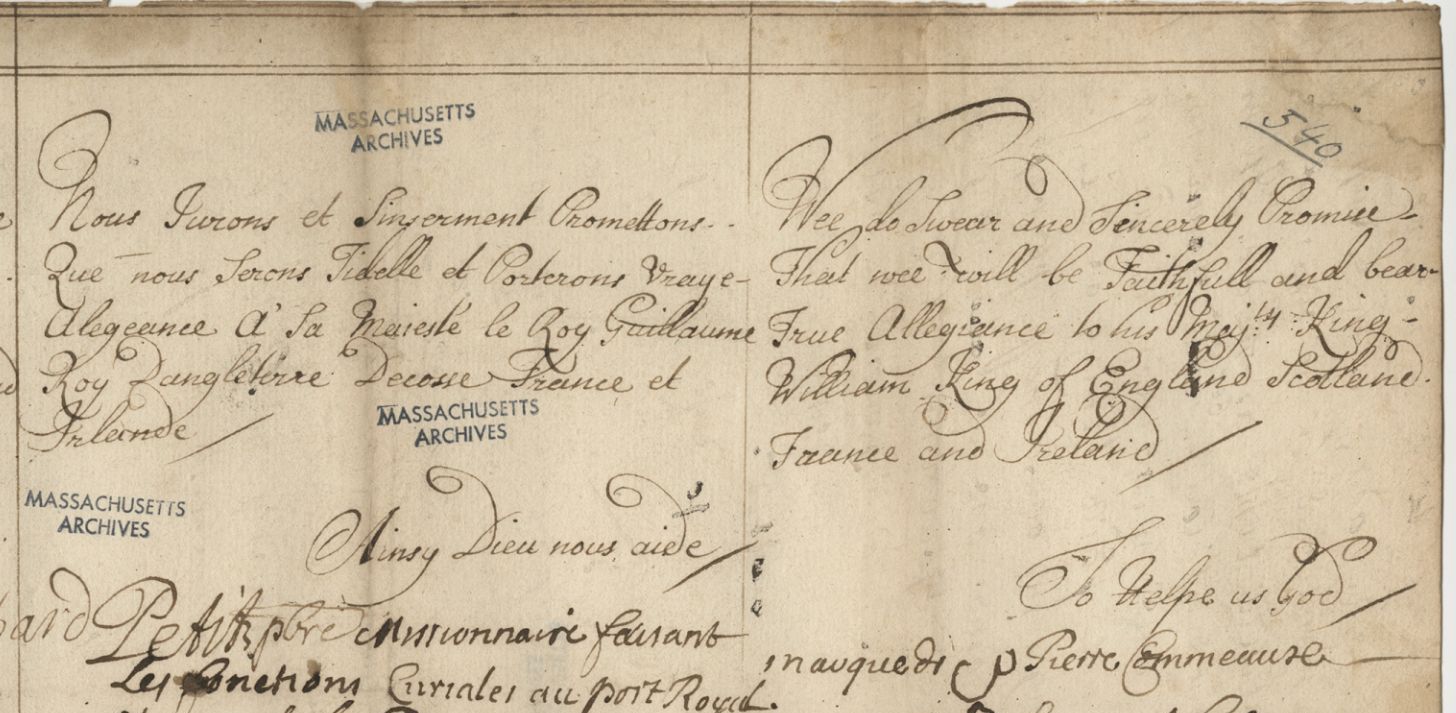 MASSACHUSETTS
ARCHIVES
Nous Jurons et Sinserment Promettons
Que nous Serons Fidelle et Porterons Vraye-
Alegeance A' Sa Maiesté le Roy Guillaume
Roy Dangleterre Decosse France et
Irlande
MASSACHUSETTS
ARCHIVES
MASSACHUSETTS
ARCHIVES
Ainsy Dieu nous aide
Petit pbre Missionnaire faisant
Les fonctions Curiales au port Royal.
540
Wee do Swear and Sincerely Promise
That wee will be Faithfull and bear-
True Allegiance to his Maj:ty: King-
William King of England Scotland.
France and Ireland
So Helpe us God
marque de Pierre Commeause